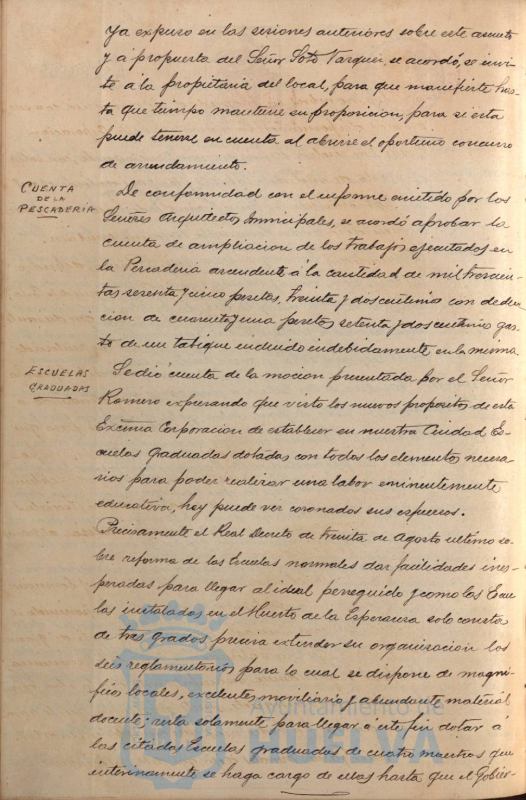 ya expuso en las sesiones anteriores sobre este asunto
y á propuesta del Señor Soto Vazquez, se acordó, se invi-
te á la propietaria del local, para que manifieste has-
ta que tiempo mantiene su proposicion, para si esta
puede tenerse en cuenta al abrirse el oportuno concurso
de arrendamiento.
CUENTA
DE LA
PESCADERIA
De conformidad con el informe emitido por los
Señores Arquitectos Municipales, se acordó aprobar la
cuenta de ampliacion de los trabajos ejecutados en
la Pescaderia ascendente á la cantidad de mil trescien-
tas sesenta y cinco pesetas, treinta y dos centimos con deduc-
cion de cuarenta y una pesetas setenta y dos centimos gas-
to de un tabique incluido indebidamente en la misma
ESCUELAS
GRADUADAS
Se dió cuenta de la mocion presentada por el Señor
Romero expresando que visto los nuevos propositos de esta
Excma Corporacion de establecer en nuestra Ciudad Es-
cuelas graduadas dotadas con todos los elementos necesa-
rios para poder realizar una labor eminentemente
educativa, hoy puede ver coronados sus esfuerzos.
Precisamente el Real Decreto de treinta de Agosto ultimo so-
bre reforma de las Escuelas normales dan facilidades ines-
peradas para llegar al ideal perseguido y como las Escue-
las instaladas en el Huerto de la Esperanza solo consta
de tres grados precisa extender su organizacion los
seis reglamentarios para lo cual se dispone de magni-
ficos locales, excelentes moviliario y abundante material
docente; resta solamente, para llegar á este fin dotar á
las citadas Escuelas graduadas de cuatro maestros que
interinamente se haga cargo de ellas hasta que el Gobier-
Ayuntamiento de
HUELVA